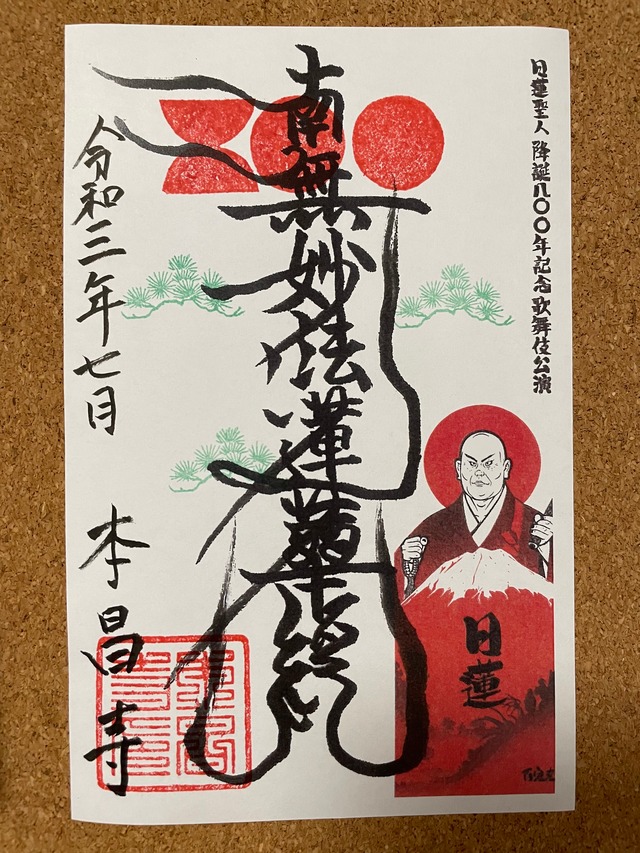 日蓮聖人 降誕八〇〇年記念 歌舞伎公演
南無妙法蓮華経
日蓮
令和三年七月
本昌寺